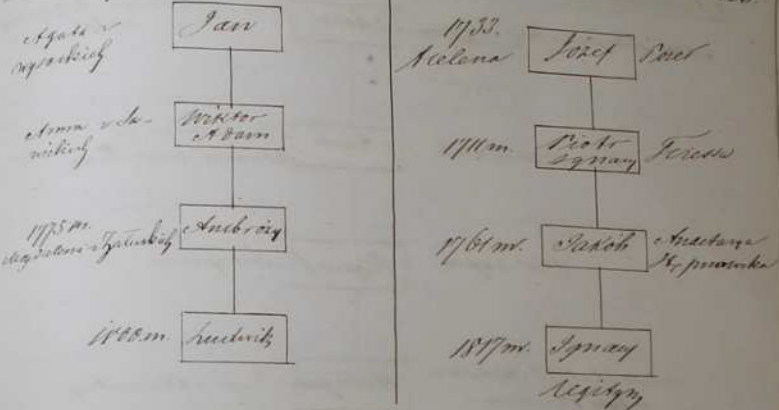 Agata z
Wysockich
Jan
Anna z Sa-
wickich
Wiktor
Adam
1775 m.
Magdalena z Załuskich
Ambroży
1800 m.
Ludwik
1733.
Helena
Józef
1711 m.
Piotr
Ignacy
Teressa
1761 m.
Jakób
Anastazya
1817 m.
Ignacy
Legitym,